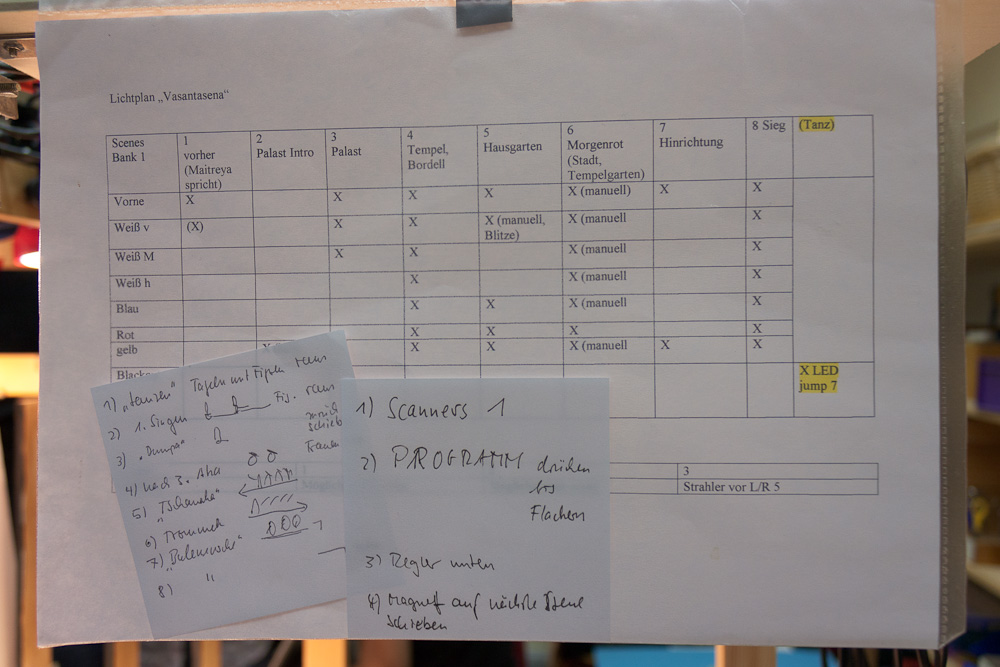 Lichtplan „Vasantasena“
Scenes Bank 1 | 1 vorher (Maitreya spricht) | 2 Palast Intro | 3 Palast | 4 Tempel, Bordell | 5 Hausgarten | 6 Morgenrot (Stadt, Tempelgarten) | 7 Hinrichtung | 8 Sieg | (Tanz)
Vorne X X X X X (manuell) X X
Weiß v (X) X X X (manuell, Blitze) X (manuell X
Weiß M X X X (manuell X
Weiß h X X (manuell X
Blau X X X (manuell X
Rot X X X X
gelb X X X (manuell X X
X LED jump 7
3
Strahler vor L/R 5
1) „ Tafeln mit raus
2) 1. Singen Fig. raus
3)
4) nach 3. Aha
5)
6) Trommel
7)
8) "
1) Scanners 1
2) PROGRAMM drücken
bis
Flashern
3) Regler unten
4) Magnet auf nächste Szene
schieben